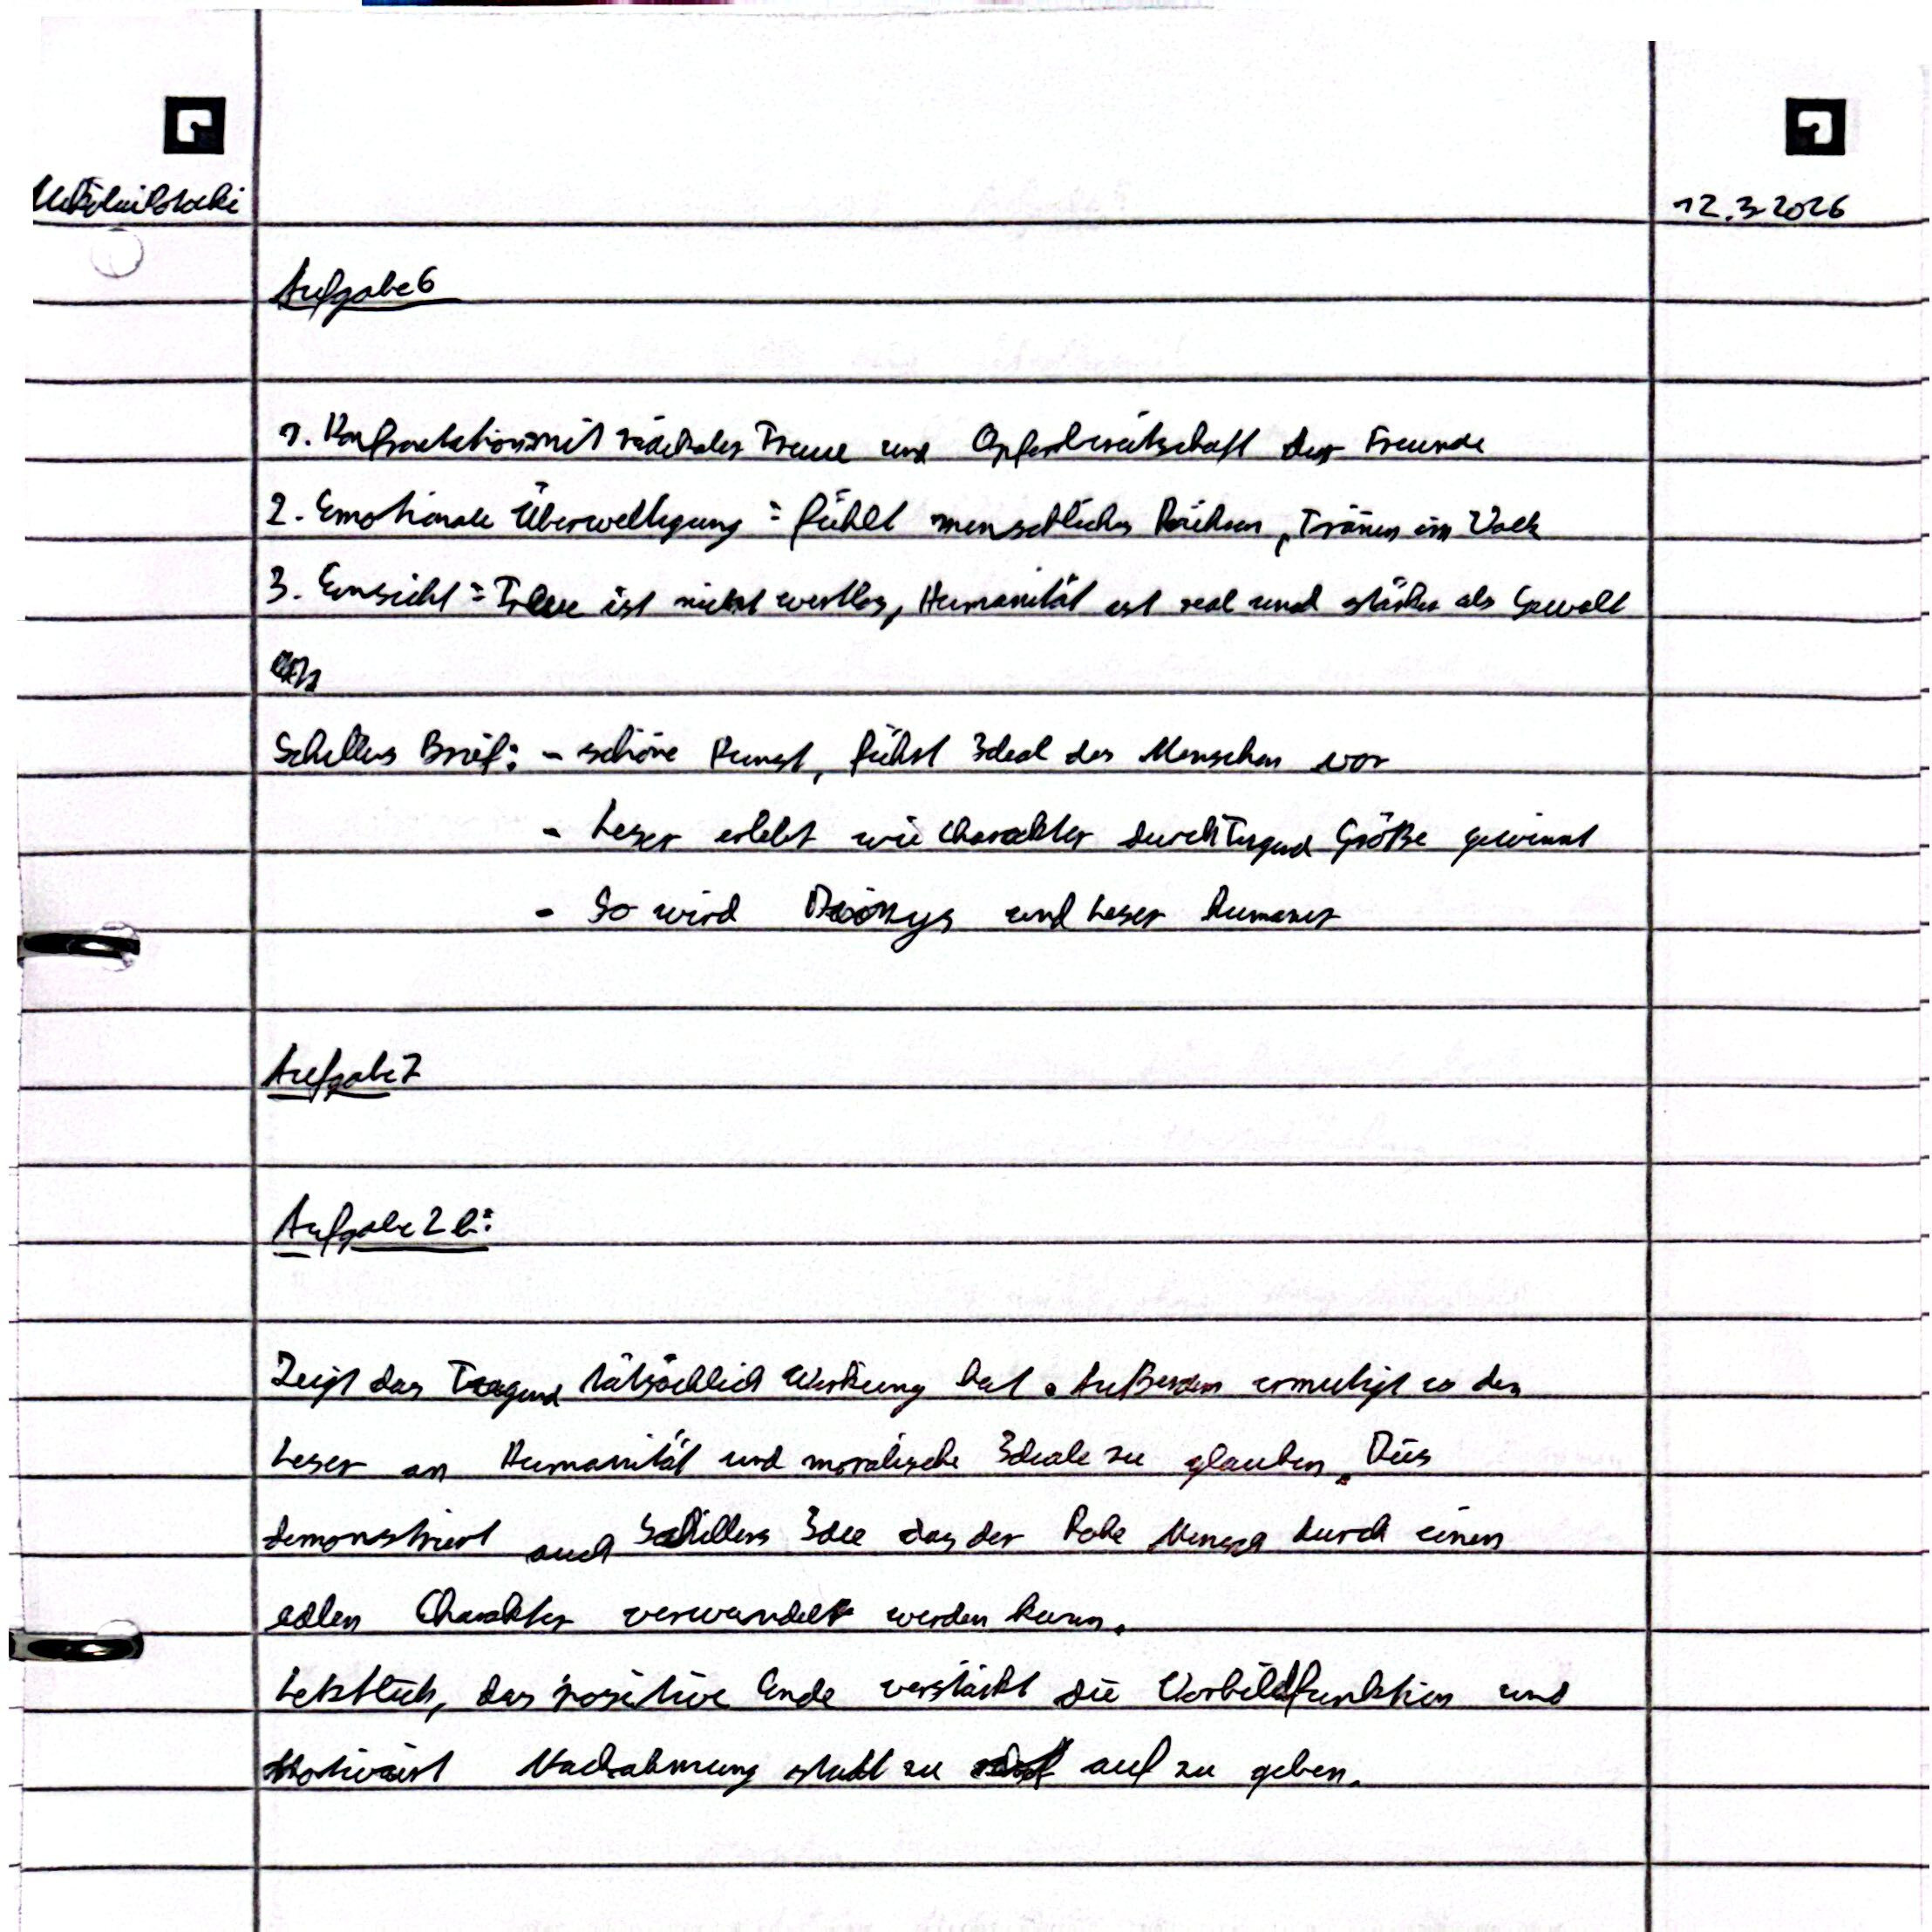 12.3.2026
Aufgabe 6
1. Konfrontation mit radikaler Treue und Opferbereitschaft der Freunde
2. Emotionale Überweltigung: fühlt menschliches Rühren, Tränen im Volk
3. Einsicht: Treue ist nicht wertlos, Humanität ist real und stärker als Gewalt
Schillers Brief: - schöne Kunst, führt Ideal des Menschen vor
- Leser erlebt wie Charakter durch Tugend Größe gewinnt
- So wird Dionys und Leser humaner
Aufgabe 7
Aufgabe 2 b:
Zeigt das Tugend tatsächlich Wirkung hat. Außerdem ermutigt es den
Leser an Humanität und moralische Ideale zu glauben. Dies
demonstriert auch Schillers Idee das der rohe Mensch durch einen
edlen Charakter verwandelt werden kann.
Letztlich, das positive Ende verstärkt die Vorbildfunktion und
Motiviert Nachahmung statt zu auf zu geben.